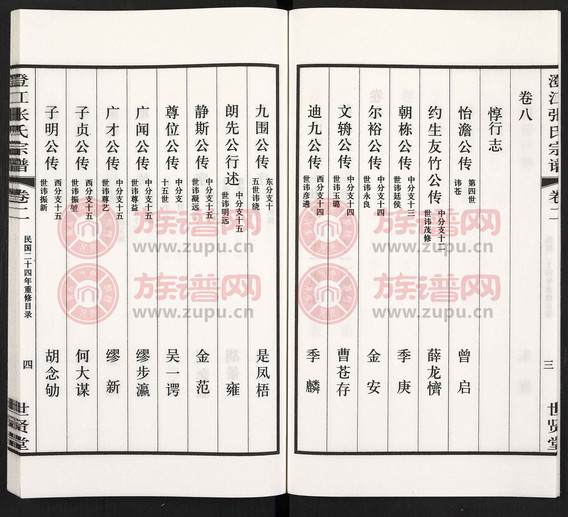 澄江张氏宗谱 卷二
三
世贤堂
卷八
惇行志
怡澹公传 第四世讳苍 曾启
约生友竹公传 中分支十二世讳茂修 薛龙懤
朝栋公传 中分支十三世讳廷侯 季庚
尔裕公传 中分支十四世讳永良 金安
文锜公传 中分支十四世讳玉璐 曹苍存
迪九公传 西分支十四世讳彦通 季麟
九围公传 东分支十五世讳绕 是凤梧
朗先公行述 中分支十五世讳明远 雍
静斯公传 中分支十五世讳凝远 金范
尊位公传 中分支十五世 吴一谔
广闻公传 中分支十五世讳尊益 缪步瀛
广才公传 中分支十五世讳尊艺 缪新
子贞公传 西分支十五世讳振 何大谋
子明公传 西分支十五世讳振新 胡念劬
澄江张氏宗谱 卷二
民国二十四年重修目录
四
世贤堂
族谱网
www.zupu.cn
族谱网
www.zupu.cn
族谱网
www.zupu.cn
族谱网
www.zupu.cn